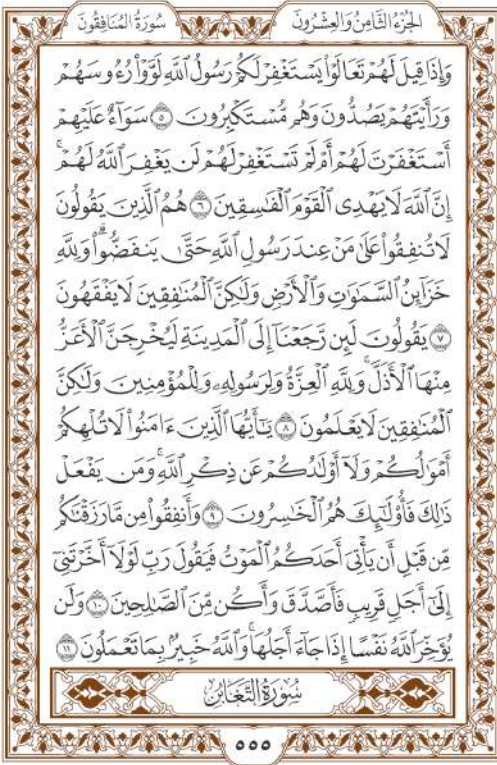 الجزء الثامن والعشرون سورة المنافقون
وَإِذَا قِيلَ لَهُمْ تَعَالَوْا۟ يَسْتَغْفِرْ لَكُمْ رَسُولُ ٱللَّهِ لَوَّوْا۟ رُءُوسَهُمْ
وَرَأَيْتَهُمْ يَصُدُّونَ وَهُم مُّسْتَكْبِرُونَ ٥ سَوَآءٌ عَلَيْهِمْ
أَسْتَغْفَرْتَ لَهُمْ أَمْ لَمْ تَسْتَغْفِرْ لَهُمْ لَن يَغْفِرَ ٱللَّهُ لَهُمْ ۚ
إِنَّ ٱللَّهَ لَا يَهْدِى ٱلْقَوْمَ ٱلْفَـٰسِقِينَ ٦ هُمُ ٱلَّذِينَ يَقُولُونَ
لَا تُنفِقُوا۟ عَلَىٰ مَنْ عِندَ رَسُولِ ٱللَّهِ حَتَّىٰ يَنفَضُّوا۟ ۗ وَلِلَّهِ
خَزَآئِنُ ٱلسَّمَـٰوَٰتِ وَٱلْأَرْضِ وَلَـٰكِنَّ ٱلْمُنَـٰفِقِينَ لَا يَفْقَهُونَ
٧ يَقُولُونَ لَئِن رَّجَعْنَآ إِلَى ٱلْمَدِينَةِ لَيُخْرِجَنَّ ٱلْأَعَزُّ
مِنْهَا ٱلْأَذَلَّ ۚ وَلِلَّهِ ٱلْعِزَّةُ وَلِرَسُولِهِۦ وَلِلْمُؤْمِنِينَ وَلَـٰكِنَّ
ٱلْمُنَـٰفِقِينَ لَا يَعْلَمُونَ ٨ يَـٰٓأَيُّهَا ٱلَّذِينَ ءَامَنُوا۟ لَا تُلْهِكُمْ
أَمْوَٰلُكُمْ وَلَآ أَوْلَـٰدُكُمْ عَن ذِكْرِ ٱللَّهِ ۚ وَمَن يَفْعَلْ
ذَٰلِكَ فَأُو۟لَـٰٓئِكَ هُمُ ٱلْخَـٰسِرُونَ ٩ وَأَنفِقُوا۟ مِن مَّا رَزَقْنَـٰكُم
مِّن قَبْلِ أَن يَأْتِىَ أَحَدَكُمُ ٱلْمَوْتُ فَيَقُولَ رَبِّ لَوْلَآ أَخَّرْتَنِىٓ
إِلَىٰٓ أَجَلٍ قَرِيبٍ فَأَصَّدَّقَ وَأَكُن مِّنَ ٱلصَّـٰلِحِينَ ١٠ وَلَن
يُؤَخِّرَ ٱللَّهُ نَفْسًا إِذَا جَآءَ أَجَلُهَا ۚ وَٱللَّهُ خَبِيرٌۢ بِمَا تَعْمَلُونَ ١١
سُورَةُ التَّغَابُنِ
٥٥٥